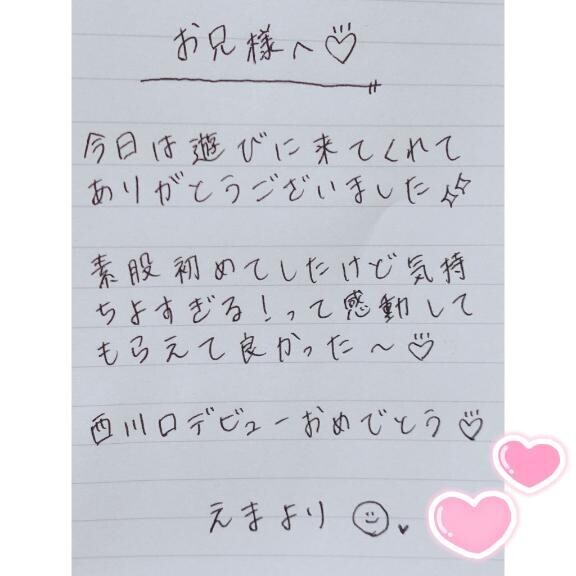 お兄様へ♡
今日は遊びに来てくれて
ありがとうございました
素股初めてしたけど気持
ちよすぎる!って感動して
もらえて良かった〜♡
西川口デビューおめでとう♡
えまより